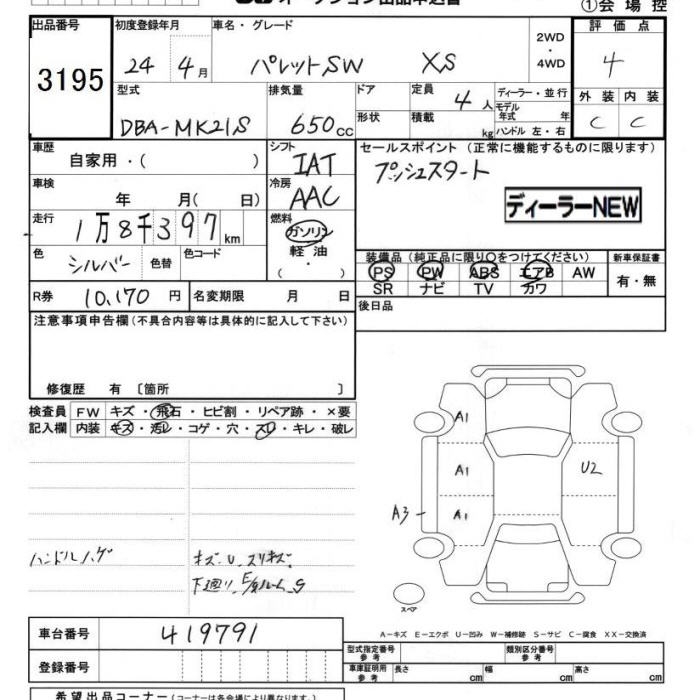 ①会場控
出品番号 初度登録年月 車名・グレード 2WD・4WD 評価点
3195 24年4月 パレットSW XS 4
型式 排気量 ドア 定員 ディーラー・並行 外装 内装
DBA-MK21S 650cc 形状 4人 積載 kg モデル年式 年 ハンドル左・右 C C
車歴 シフト セールスポイント(正常に機能するものに限ります)
自家用・( ) IAT プッシュスタート
車検 冷房
年 月( 日) AAC ディーラーNEW
走行 燃料
1万8千397km ガソリン
軽油
・
( )
色 シルバー 色替 色コード
装備品(純正品に限り○をつけてください) 新車保証書
PS PW ABS エアB AW 有・無
SR ナビ TV カワ
R券 10,170円 名変期限 月 日 後日品
注意事項申告欄(不具合内容等は具体的に記入して下さい)
修復歴 有 [箇所 ]
検査員 FW キズ・飛石・ヒビ割・リペア跡・×要
記入欄 内装 キズ・汚レ・コゲ・穴・スレ・キレ・破レ
A1
A1 U2
A3 A1
ハンドルハゲ キズ.U.スリキズ.
下廻り.E/ルーム.S
スペア
A-キズ E-エクボ U-凹み W-補修跡 S-サビ C-腐食 XX-交換済
車台番号 419791
型式指定番号 参考 類別区分番号 参考
登録番号 車庫証明用 参考 長さ cm 幅 cm 高さ cm
希望出品コーナー(コーナーは各会場により異なります)